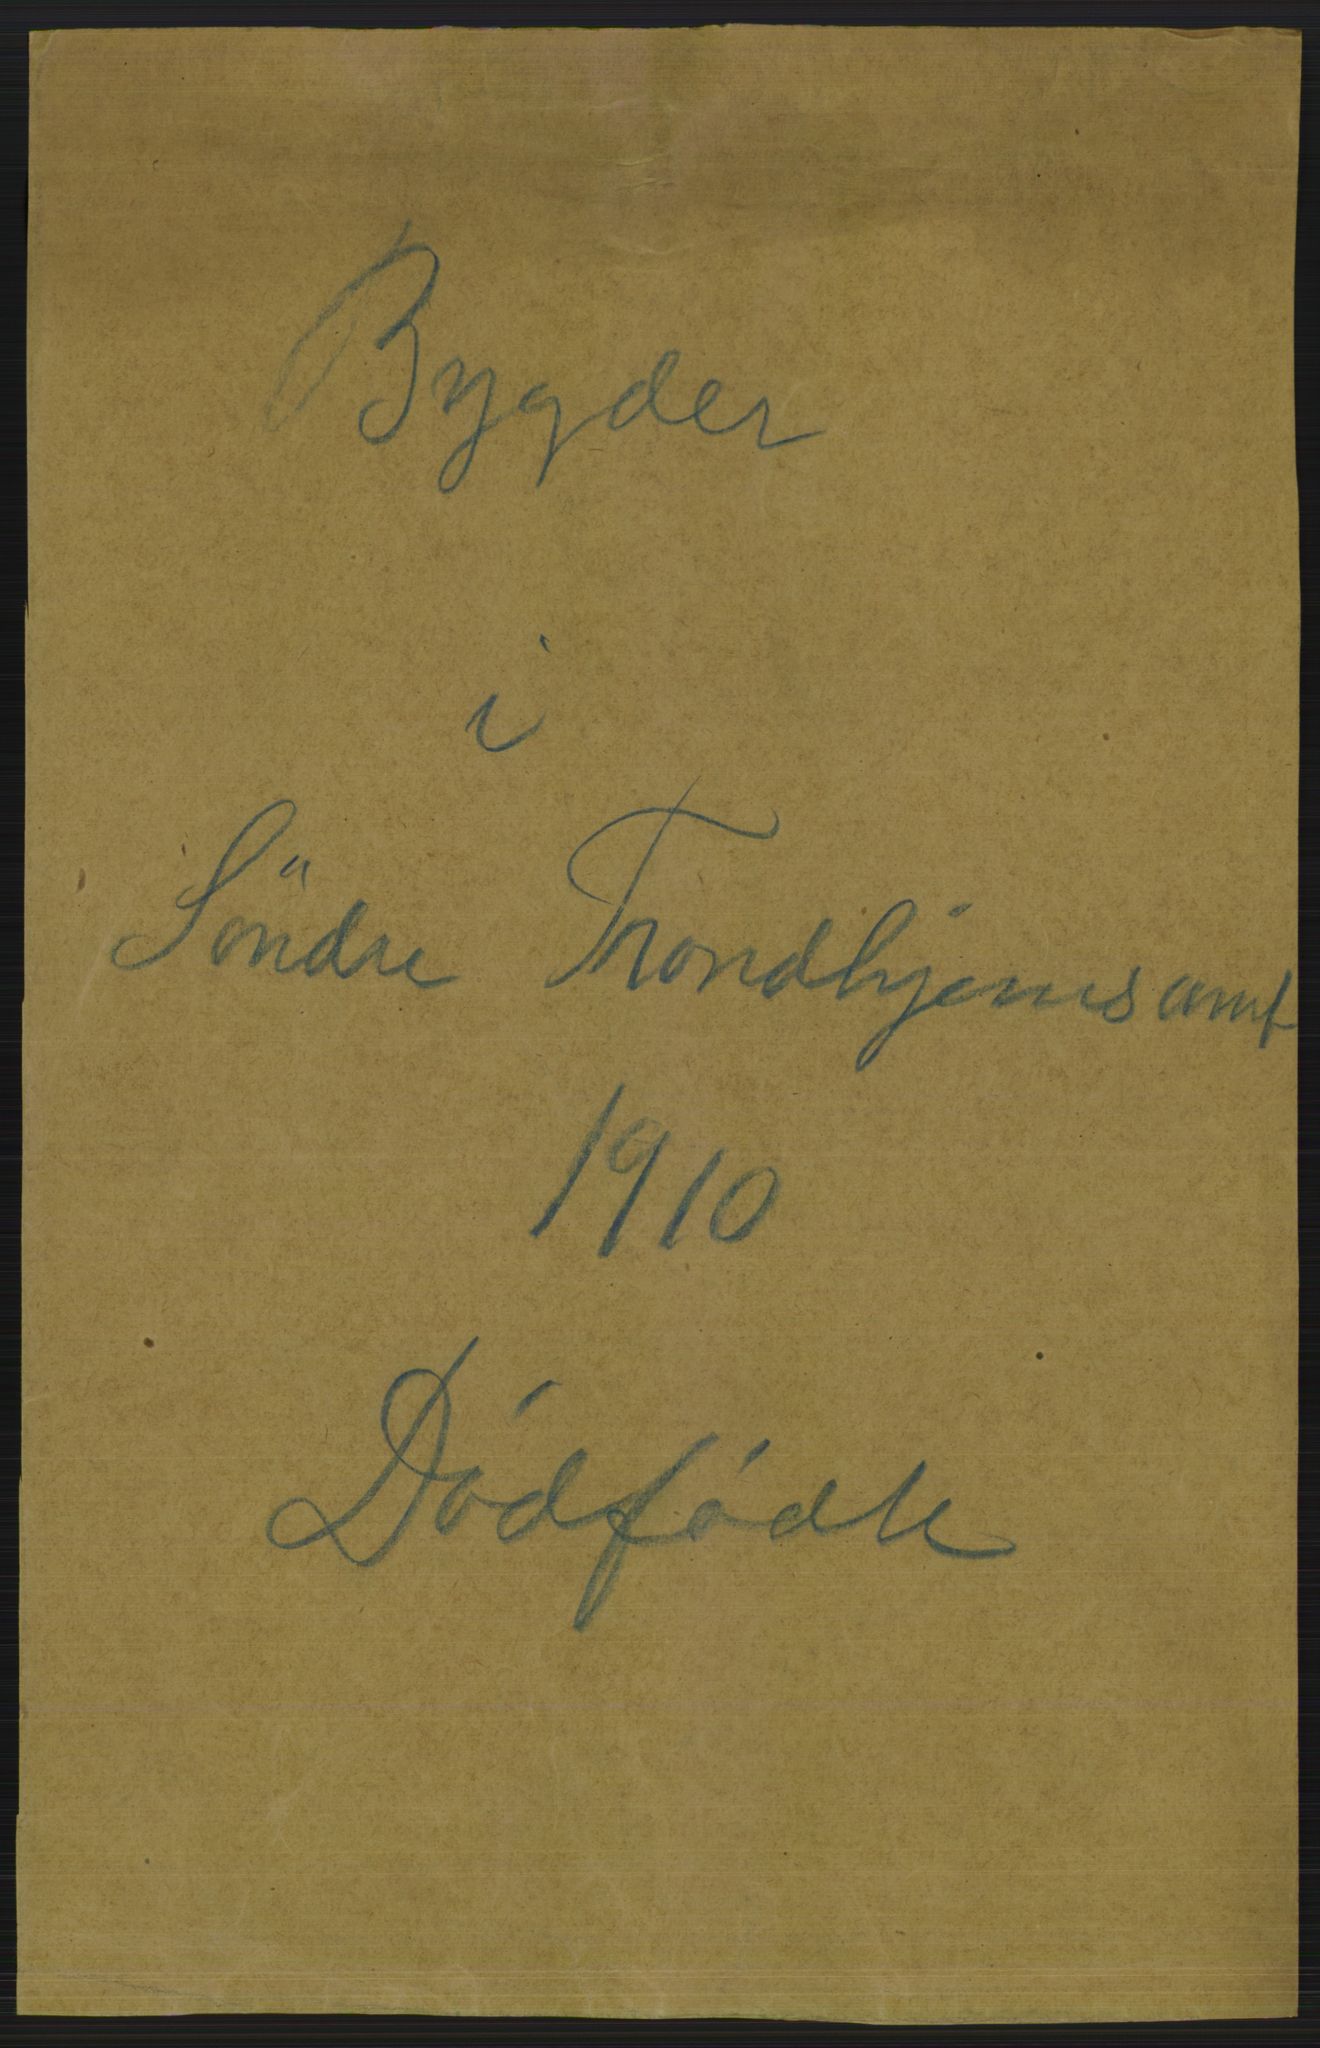 Bygder
i
Söndre Trondhjems amt
1910
Dódfódte